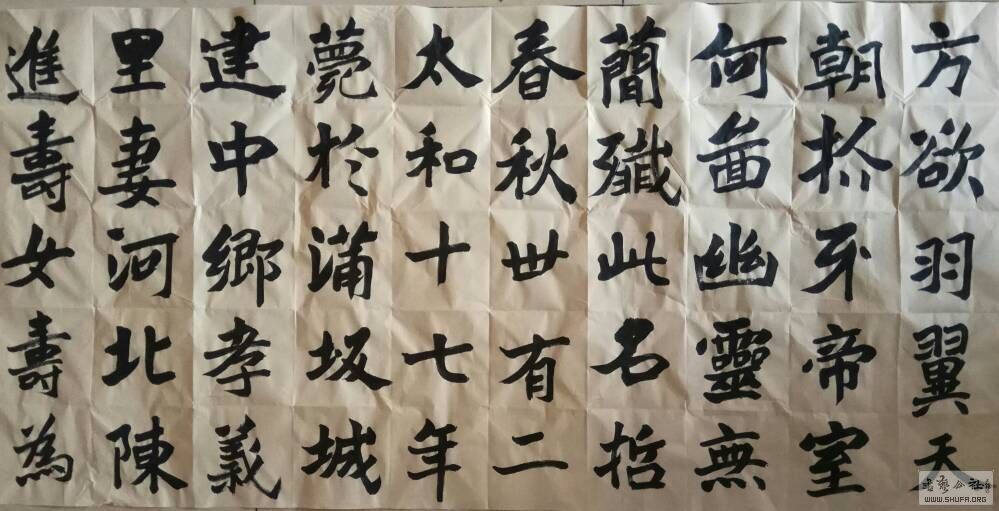 方欲羽翼天
朝抓牙帝室
何啚幽靈無
簡殲此名哲
春秋世有二
太和十七年
薨於蒲坂城
建中鄉孝義
里妻河北陳
進壽女壽為
书艺公社
WWW.SHUFA.ORG